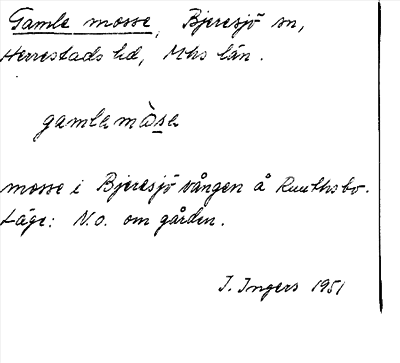 Gamle mosse, Bjeresjö sn,
Herrestads hd, Mhs län.
gamle màse
mosse i Bjeresjö vången å Ruuthsbo.
Läge: N.O. om gården.
I. Ingers 1951